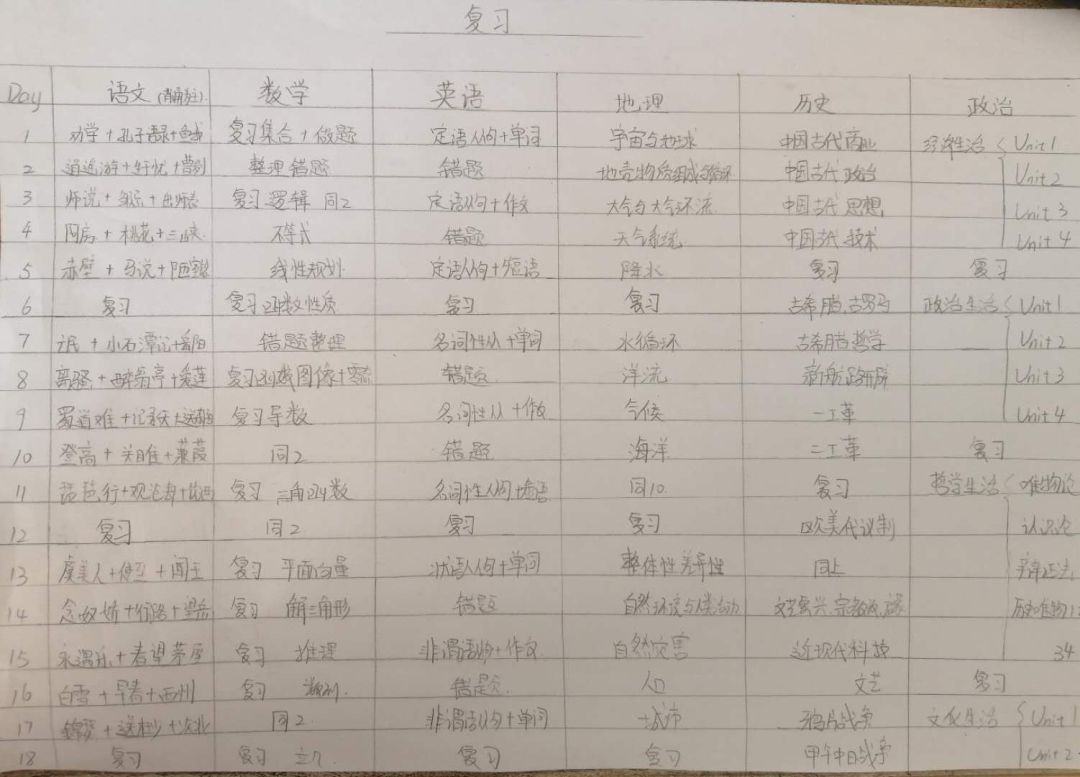 复习
Day 语文(背翻注) 数学 英语 地理 历史 政治
1 劝学+孔子 复习集合+做题 定语从句+单词 宇宙与地球 中国古代商业 经济生活 Unit 1
2 逍遥游+生于忧+曹刿 整理错题 错题 地壳物质组成与循环 中国古代政治 Unit 2
3 师说+邹忌+出师表 复习逻辑 同2 定语从句+作文 大气与大气环流 中国古代思想 Unit 3
4 阿房+桃花+三峡 不等式 错题 天气系统 中国古代技术 Unit 4
5 赤壁+马说+陋室铭 线性规划 定语从句+短语 降水 复习 复习
6 复习 复习函数性质 复习 复习 古希腊,古罗马 政治生活 Unit 1
7 氓+小石潭记+岳阳 错题整理 名词性从+单词 水循环 古希腊哲学 Unit 2
8 离骚+醉翁亭+爱莲 复习函数图像+零点 错题 洋流 新航路开辟 Unit 3
9 蜀道难+记承天+送东阳 复习导数 名词性从+作文 气候 一工革 Unit 4
10 登高+关雎+蒹葭 同2 错题 海洋 二工革 复习
11 琵琶行+观沧海 复习 三角函数 名词性从句+短语 同10. 复习 哲学生活 唯物论
12 复习 同2 复习 复习 欧美代议制 认识论
13 虞美人+使至+闻王 复习 平面向量 状语从句+单词 整体性差异性 同上 辩证法
14 念奴娇+行路+望岳 复习 解三角形 错题 自然环境与人类活动 文艺复兴,宗教改 历史唯物
15 永遇乐+春望茅屋 复习 推理 非谓语的+作文 自然灾害 近现代科技 34
16 白雪+早春+西州 复习 数列. 错题. 人口 文艺 复习
17 锦瑟+送杜少+次北 同2. 非谓语从句+单词 城市 鸦片战争 文化生活 Unit 1
18 复习 复习 立几 复习 复习 甲午中日战争 Unit 2